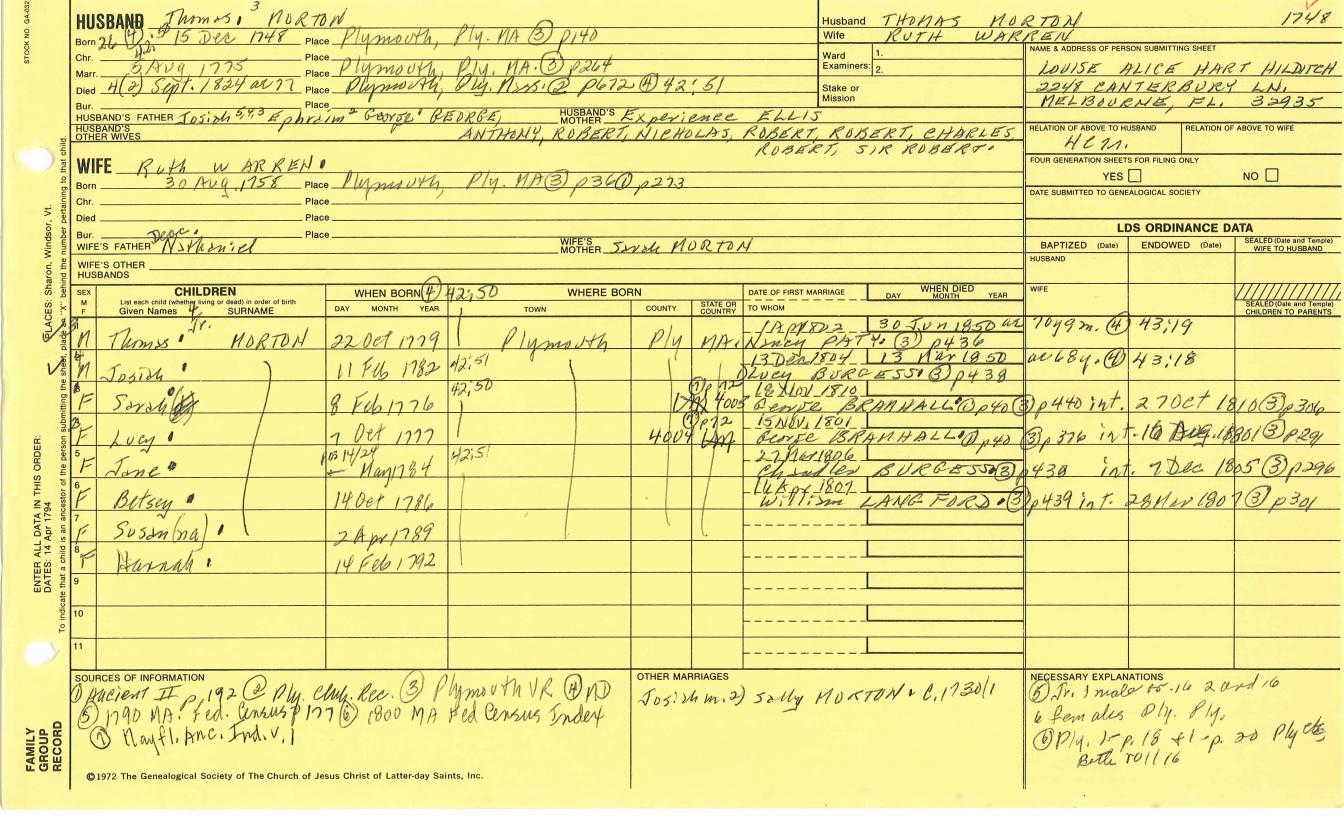 STOCK NO. GA-032
HUSBAND Thomas, 3 MORTON
Born 26 (4) 15 Dec 1748 Place Plymouth, Ply. MA (3) p140
Chr. Place
Marr. 5 Aug 1775 Place Plymouth, Ply. MA. (3) p264
Died 4(2) Sept. 1824 ae 77 Place Plymouth, Ply. Mass. (2) p672 (4) 42:51
Bur. Place
HUSBAND'S FATHER Josiah 5,4,3 Ephraim 2 George 1 GEORGE, HUSBAND'S MOTHER Experience ELLIS
HUSBAND'S OTHER WIVES ANTHONY, ROBERT, NICHOLAS, ROBERT, ROBERT, CHARLES
ROBERT, SIR ROBERT.
Husband THOMAS MORTON 1748
Wife RUTH WARREN
Ward Examiners: 1.
2.
Stake or Mission
NAME & ADDRESS OF PERSON SUBMITTING SHEET
LOUISE ALICE HART HILDITCH
2248 CANTERBURY LN.
MELBOURNE, FL. 32935
RELATION OF ABOVE TO HUSBAND RELATION OF ABOVE TO WIFE
FOUR GENERATION SHEETS FOR FILING ONLY
YES NO
DATE SUBMITTED TO GENEALOGICAL SOCIETY
WIFE Ruth WARREN
Born 30 Aug 1758 Place Plymouth, Ply. MA (3) p36 (1) p273
Chr. Place
Died Place
Bur. Place
WIFE'S FATHER Deac. Nathaniel WIFE'S MOTHER Sarah MORTON
WIFE'S OTHER HUSBANDS
LDS ORDINANCE DATA
BAPTIZED (Date) ENDOWED (Date) SEALED (Date and Temple) WIFE TO HUSBAND
HUSBAND
WIFE
SEALED (Date and Temple) CHILDREN TO PARENTS
SEX M F CHILDREN List each child (whether living or dead) in order of birth Given Names SURNAME
WHEN BORN (4) 42:50 DAY MONTH YEAR
WHERE BORN TOWN COUNTY STATE OR COUNTRY
DATE OF FIRST MARRIAGE TO WHOM
WHEN DIED DAY MONTH YEAR
M Thomas 4 Jr. MORTON 22 Oct 1779 Plymouth Ply MA. 1 Apr 1802 30 Jun 1850 ae 70y9m. (4) 43:19
Nancy PATY. (3) p436
M Josiah 11 Feb 1782 42:51 13 Dec 1804 13 Mar 1850 ae 68y. (4) 43:18
Lucy BURGESS (3) p438
F Sarah 8 Feb 1776 42:50 (7) p72 4003 18 Nov. 1810
George BRAMHALL (1) p40 (3) p440 int. 27 Oct 1810 (3) p306
F Lucy 7 Oct 1777 (7) p72 4004 15 Nov. 1801
George BRAMHALL (1) p40 (3) p376 int. 16 Aug. 1801 (3) p291
5 F Jane May 1784 42:51 27 Mar 1806
Chandler BURGESS (3) p438 int. 7 Dec 1805 (3) p296
6 F Betsey 14 Oct 1786 16 Apr 1807
William LANGFORD (3) p439 int. 28 Mar 1807 (3) p301
7 F Susan(na) 2 Apr 1789
8 F Hannah 14 Feb 1792
9
10
11
SOURCES OF INFORMATION
(1) Ancient II p. 192 (2) Ply. Chh. Rec. (3) Plymouth VR (4) MD
(5) 1790 MA. Fed. Census p177 (6) 1800 MA Fed Census Index
(7) Mayfl. Anc. Ind. v. 1
OTHER MARRIAGES
Josiah m. 2) Sally MORTON
NECESSARY EXPLANATIONS
(5) Jr. 1 male 2 and 16
6 females Ply. Ply.
(6) Ply. 1-p. 18 + 1-p. 20 Ply
Both roll 16
©1972 The Genealogical Society of The Church of Jesus Christ of Latter-day Saints, Inc.
PLACES: Sharon, Windsor, Vt.
ENTER ALL DATA IN THIS ORDER:
DATES: 14 Apr 1794
To indicate that a child is an ancestor of the person submitting the sheet, place an "X" behind the number pertaining to that child.
FAMILY GROUP RECORD